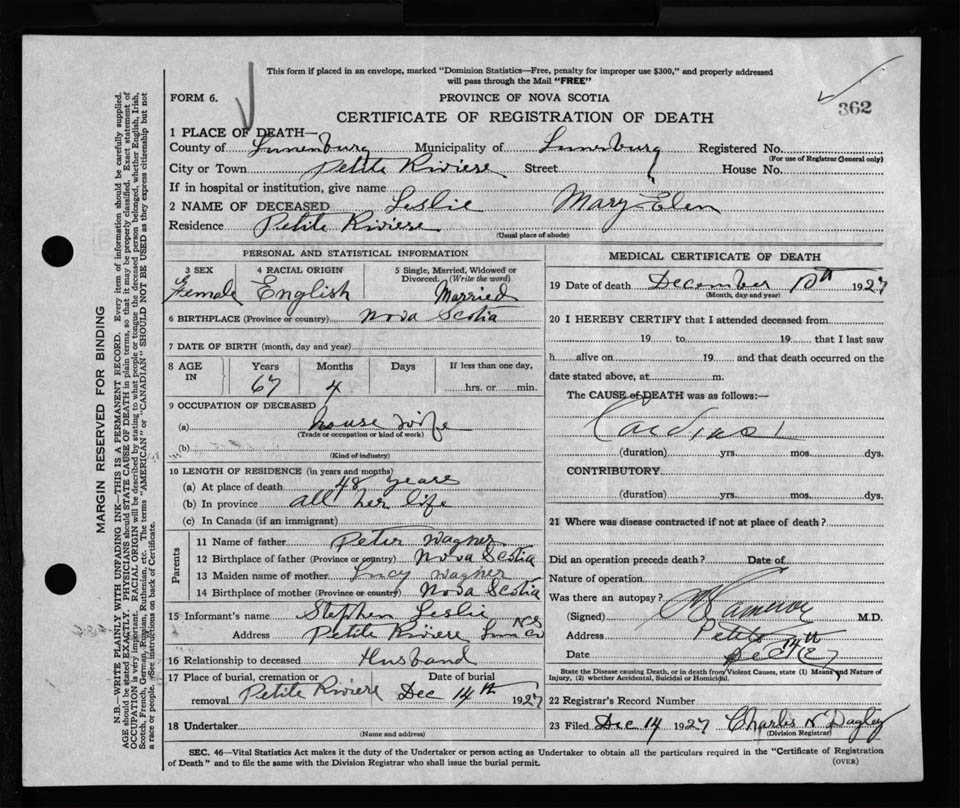 This form if placed in an envelope, marked "Dominion Statistics—Free, penalty for improper use $300," and properly addressed
will pass through the Mail "FREE"
FORM 6.
PROVINCE OF NOVA SCOTIA
362
CERTIFICATE OF REGISTRATION OF DEATH
1 PLACE OF DEATH—
County of Lunenburg Municipality of Lunenburg Registered No.
(For use of Registrar General only)
City or Town Petite Riviere Street House No.
If in hospital or institution, give name
2 NAME OF DECEASED Leslie Mary Elen
Residence Petite Riviere
(Usual place of abode)
PERSONAL AND STATISTICAL INFORMATION
3 SEX 4 RACIAL ORIGIN 5 Single, Married, Widowed or
Divorced. (Write the word)
Female English Married
6 BIRTHPLACE (Province or country) Nova Scotia
7 DATE OF BIRTH (month, day and year)
8 AGE Years Months Days If less than one day,
IN 67 4 hrs. or min.
9 OCCUPATION OF DECEASED
(a) house wife
(Trade or occupation or kind of work)
(b)
(Kind of industry)
10 LENGTH OF RESIDENCE (in years and months)
(a) At place of death 48 years
(b) In province all her life
(c) In Canada (if an immigrant)
Parents
11 Name of father Peter Wagner
12 Birthplace of father (Province or country) Nova Scotia
13 Maiden name of mother Lucy Wagner
14 Birthplace of mother (Province or country) Nova Scotia
15 Informant's name Stephen Leslie
Address Petite Riviere Lun Co NS
16 Relationship to deceased Husband
17 Place of burial, cremation or Date of burial
removal Petite Riviere Dec 14th 1927
18 Undertaker
(Name and address)
MEDICAL CERTIFICATE OF DEATH
19 Date of death December 1927
(Month, day and year)
20 I HEREBY CERTIFY that I attended deceased from
19 to 19 that I last saw
h alive on 19 and that death occurred on the
date stated above, at m.
The CAUSE of DEATH was as follows:—
(duration) yrs. mos. dys.
CONTRIBUTORY
(duration) yrs. mos. dys.
21 Where was disease contracted if not at place of death?
Did an operation precede death? Date of
Nature of operation
Was there an autopsy?
(Signed) M.D.
Address Petite
Date Dec 14th 27
State the Disease causing Death, or in death from Violent Causes, state (1) Means and Nature of
Injury, (2) whether Accidental, Suicidal or Homicidal.
22 Registrar's Record Number
23 Filed Dec 14 1927 Charles N Dagley
(Division Registrar)
SEC. 46—Vital Statistics Act makes it the duty of the Undertaker or person acting as Undertaker to obtain all the particulars required in the "Certificate of Registration
of Death" and to file the same with the Division Registrar who shall issue the burial permit.
(OVER)
MARGIN RESERVED FOR BINDING
N.B.—WRITE PLAINLY WITH UNFADING INK—THIS IS A PERMANENT RECORD. Every item of information should be carefully supplied.
AGE should be stated EXACTLY. PHYSICIANS should STATE CAUSE OF DEATH in plain terms, so that it may be properly classified. Exact statement of
OCCUPATION is very important. RACIAL ORIGIN will be described by stating to what people or tongue the deceased person belonged, whether English, Irish,
Scotch, French, German, Russian, Ruthenian, etc. The terms "AMERICAN" or "CANADIAN" SHOULD NOT BE USED as they express citizenship but not
a race or people. (See instructions on back of Certificate.